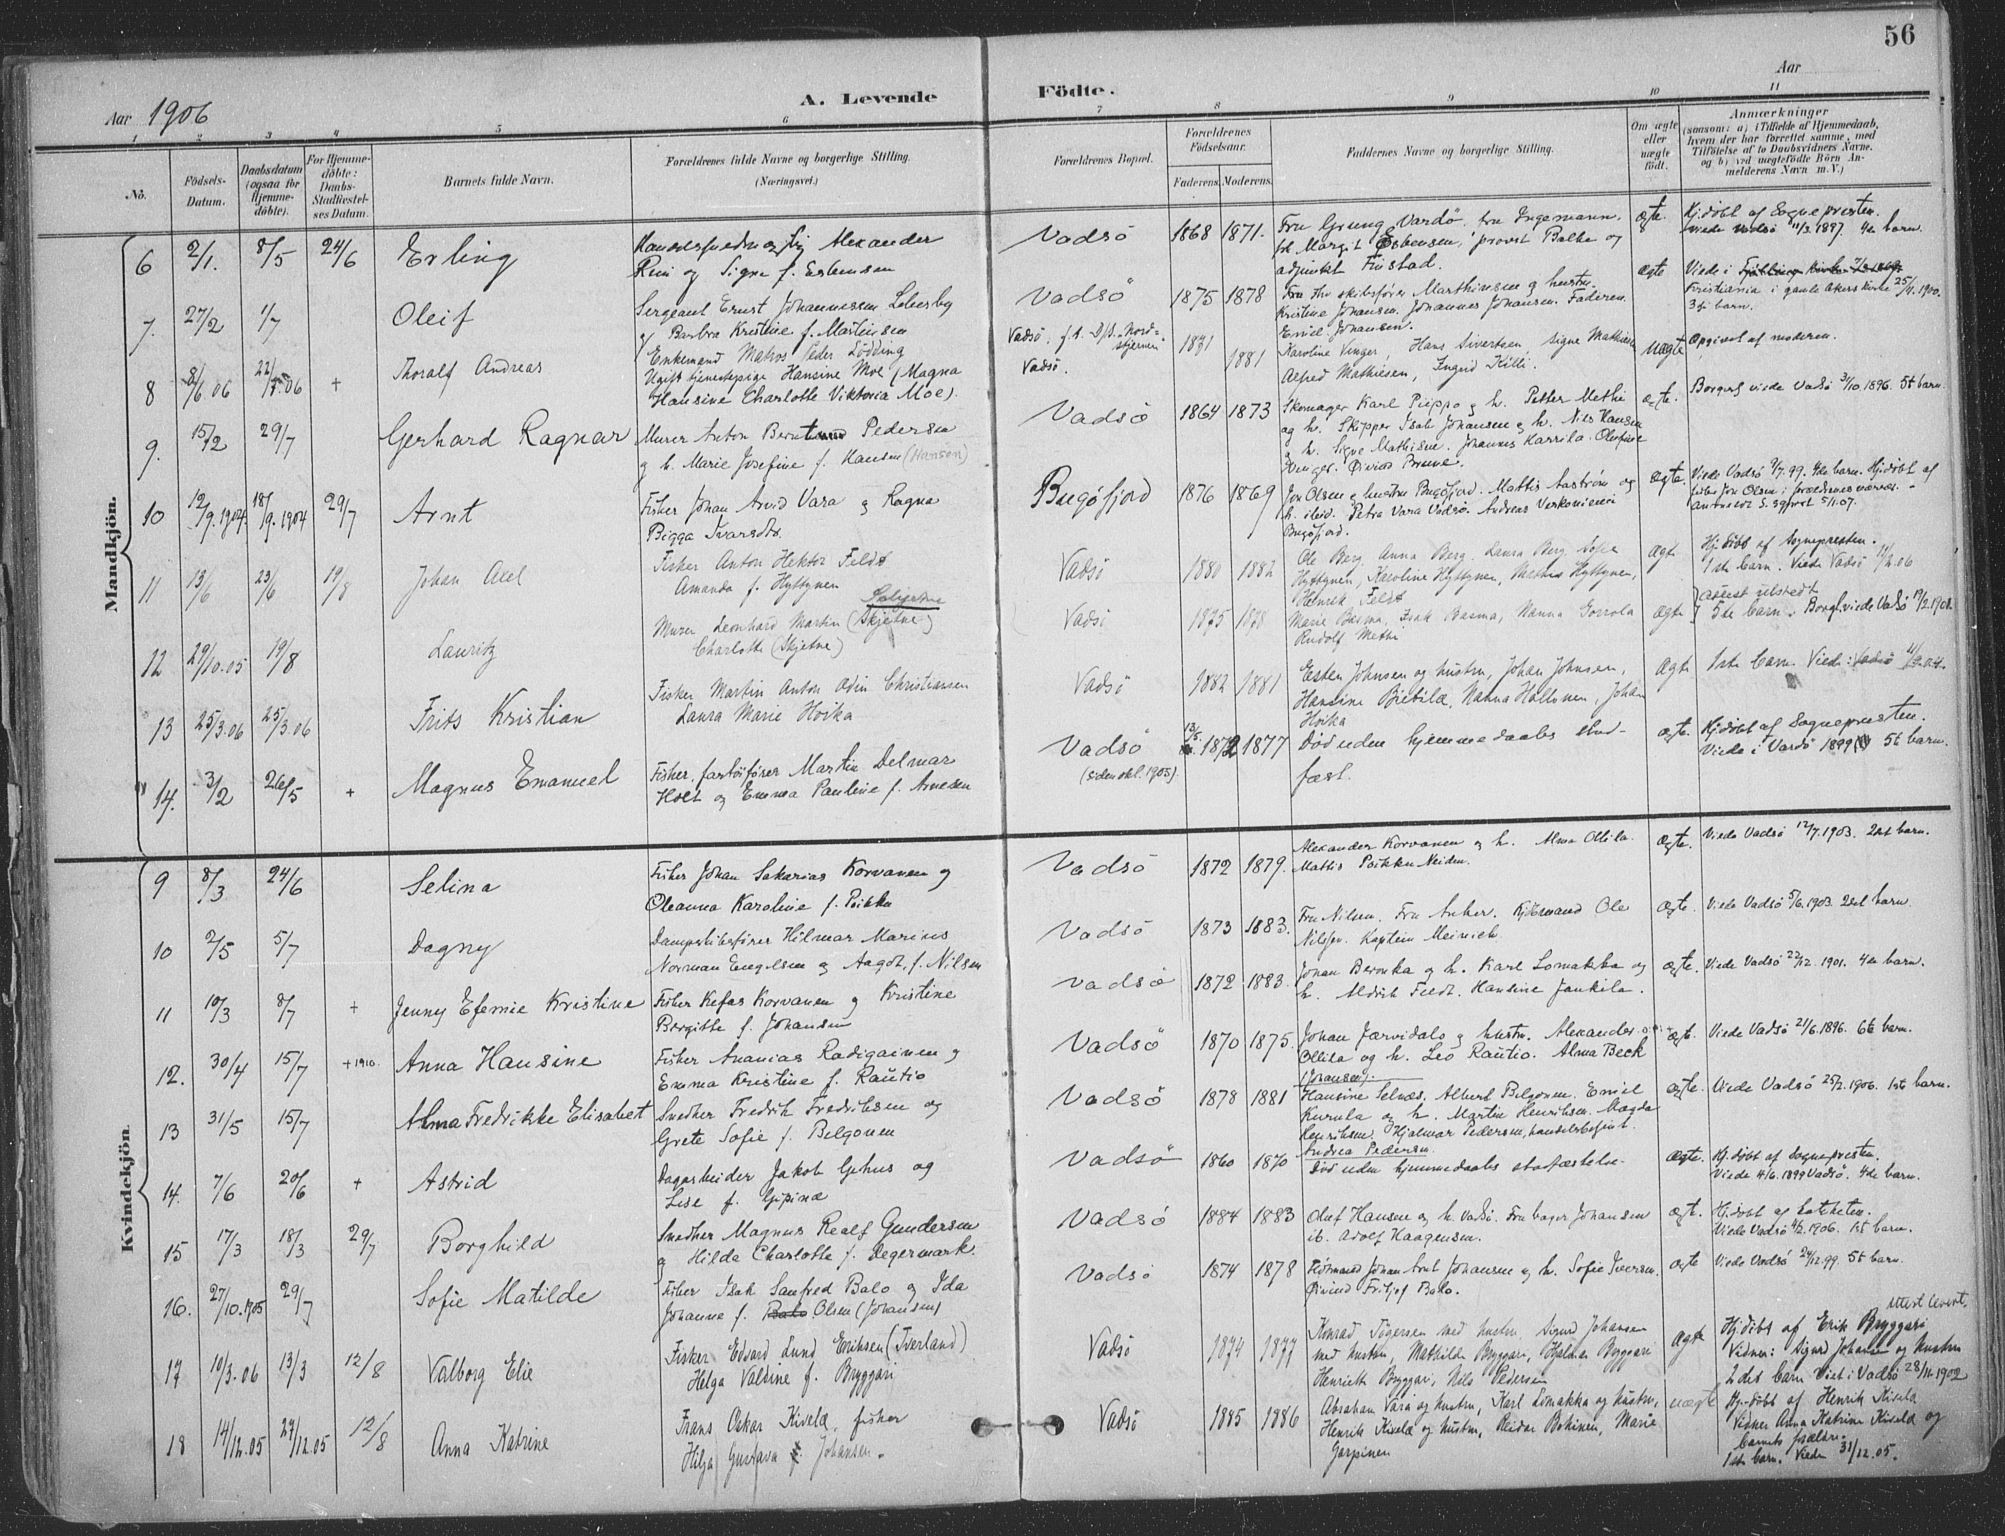 56
Aar 1906
A. Levende
Födte.
Aar
1 2 3 4 5 6 7 8 9 10 11
No.
Födsels-Datum.
Daabsdatum (ogsaa for Hjemme-döbte).
For Hjemme-döbte: Daabs-Stadfæstel-ses Datum.
Barnets fulde Navn.
Forældrenes fulde Navne og borgerlige Stilling.
(Næringsvei.)
Forældrenes Bopæl.
Forældrenes Födselsaar.
Faderens. Moderens.
Faddernes Navne og borgerlige Stilling.
Om ægte eller uægte födt.
Anmærkninger
(saasom: a) i Tilfælde af Hjemmedaab,
hvem der har forrettet samme, med
Tilföielse af to Daabsvidners Navne,
og b) ved uægtefödte Börn An-
melderens Navn m. V.)
Mandkjön.
6 2/1. 8/5 24/6 Erling
Alexander
og Signe f. Esbensen
Vadsö 1868 1871.
Fru Grung, Vardö, fru Ingemann,
frk. Margit Esbensen, provst Balke og
adjunkt Finstad.
ægte. Hj.döbt af Sognepresten.
viede Vadsö 11/3. 1897. 4de barn.
7. 27/2 1/7 Oleif
Sergeant Ernst Johannessen Lebesby
og Barbra Kristine f. Martinsen
Vadsö 1875 1878
Marthinsen og hustru.
Kristine Johansen. Johannes Johansen. Faderen.
Emil Johansen.
ægte Viede i
Kristiania i gamle Akers kirke 25/11. 1900.
3die barn.
8 8/6 06 22/7.06 + Thoralf Andreas
Enkemand Matros Peder Lödding
Ugift tjenestepige Hansine Moe (Magna
Hansine Charlotte Viktoria Moe).
Vadsö, f.t. D/S. "Nord-
stjernen"
Vadsö. 1881 1881
Karoline Vinger, Hans Sivertsen, Signe Mathisen
Alfred Mathiesen, Ingrid Killi.
uægte Opgivet af moderen.
9. 15/2 29/7 Gerhard Ragnar
Murer Anton Berntsen Pedersen
og h. Marie Josefine f. Hansen (Hanson)
Vadsö 1864 1873
Skomager Karl Pieppo og h. Petter Methi
og h. Skipper Isak Johansen og h. Nils Hansen
og h. Signe Mathisen. Johannes Karrila. Olufine
Vinger. Öivind Brune.
ægte. Borgerl. viede Vadsö 31/10. 1896. 5te barn.
10 12/9. 1904. 18/9. 1904 29/7 Arnt
Fisher Johan Arvid Vara og Ragna
Bigga Ivarsdtr.
Bugöfjord 1876 1869
Jon Olsen og hustru Bugöfjord. Mattis Aaström og
h. ibid. Petra Vara Vadsö. Andreas Verkonieni
Bugöfjord.
ægte. Viede Vadsö 9/7. 99. 4de barn. Hj.döbt af
fisher Jon Olsen i forældrenes nærvær.
11 13/6 23/6 19/8 Johan Axel
Fisker Anton Hektor Feldt
Amanda f. Hyttynen
Vadsö 1880 1882
Ole Berg, Anna Berg, Laura Berg, Sofie
Hyttynen, Karoline Hyttynen, Mathis Hyttynen,
Henrik Feldt
ægte Hj.döbt af Sognepresten.
1ste barn. Viede Vadsö 11/2.06
12 29/10.05 19/8 Lauritz
Murer Leonhard Martin (Skjetne)
Charlotte (Skjetne)
Vadsö 1875 1878
Marie Basma, Isak Basma, Nanna
Rudolf Methi
ægte 5te barn. Borgl. viede Vadsö 19/2. 1901.
13 25/3.06 25/3.06 Frits Kristian
Fisker Martin Anton Odin Christiansen
Laura Marie Hoika
Vadsö 1882 1881
Esten Johnsen og hustru, Johan Johnsen,
Hansine Bietilæ, Nanna Haltonen, Johan
Hoika
ægte 1ste barn. Viede i Vadsö
14. 3/2 26/5 + Magnus Emanuel
Fisher, fartöiförer Martin Delmar
Holt og Emma Pauline f. Arnesen
Vadsö
(siden okt. 1905).
13/5. 1872 1877
Död uden hjemmedaabs stad-
fæst.
ægte. Hj.döbt af Sognepresten.
Viede i Vardö 1899 5te barn.
Kvindekjön.
9 8/3 24/6 Selina
Fisher Johan Sakarias Korvanen og
Oleanna Karoline f. Poikka
Vadsö 1872 1879.
Alexander Korvanen og h. Alma Ollila.
Mattis Poikka Neiden.
ægte. Viede Vadsö 12/7. 1903. 2det barn.
10 2/5 5/7 Dagny
Dampskibsförer Hilmar Marius
Norman Engelsen og Aagot f. Nilsen
Vadsö 1873 1883.
Fru Nilsen. Fru Anker. Kjöbmand Ole
Nilssen. Kaptein Meinich.
ægte. Viede Vadsö 5/6. 1903. 2det barn.
11 10/3 8/7 + Jenny Efemie Kristine
Fisher Kefas Korvanen og Kristine
Bergitte f. Johansen
Vadsö 1872 1883.
Johan Beronka og h. Karl Lomakka og
h. Aldrik Feldt. Hansine Jankila.
ægte. Viede Vadsö 22/12. 1901. 4de barn.
12. 30/4 15/7 + 1910. Anna Hansine
Fisher Ananias Radigainen og
Emma Kristine f. Rautio
Vadsö 1870 1875.
Johan Jærvidalo og hustru. Alexander
Ollila og h. Leo Rautio. Alma Beck
(Johansen).
ægte. Viede Vadsö 21/6. 1896. 6te barn.
13 31/5 15/7 Alma Fredrikke Elisabet
Snedker Fredrik Fredriksen og
Grete Sofie f. Pelgonen
Vadsö 1878 1881
Hansine Selnæs. Albert Pelgonen. Emil
Kurula og h. Martin Henriksen. Magda
Henriksen. Hjalmar Pedersen, handelsbetjent.
Andrea Pedersen
ægte. Viede Vadsö 25/2. 1906. 1ste barn.
14. 7/6 20/6 + Astrid
Dagarbeider Jakob Gehus og
Lise f. Gipinæ
Vadsö 1860 1870
Död uden hjemmedaabs stadfæstelse.
ægte. Hj.döbt af Sognepresten.
Viede 4/6. 1899 Vadsö. 4de barn.
15 17/3 18/3 29/7 Borghild
Snedker Magnus Realf Gundersen
og Hilda Charlotte f. Degermark
Vadsö 1884 1883
Oluf Hansen og h. Vadsö. Fru bager Johansen
ib. Adolf Haagensen.
ægte. Hj.döbt af
Viede Vadsö 1906. 1ste barn.
16. 27/10. 1905 29/7 Sofie Matilde
Fisher Isak Sanfred Balo og Ida
Johanne f. Balo Olsen (Johansen)
Vadsö 1874 1878
Johan Arnt Johansen og h. Sofie Iversen.
Öivind Fritjof Balo.
ægte Viede Vadsö 24/12. 99. 5te barn.
17 10/3.06 13/3 12/8 Valborg Elie
Fisker Edvard Lund Eriksen (Tverland)
Helga Valdine f. Bryggari
Vadsö 1874 1877
Konrad Tögersen med hustru, Sigurd Johansen
med hustru, Mathilde Bryggari, Hjalmar Bryggari
Henriette Bryggari, Nils Pedersen
ægte Hj.döbt af Erik Bryggari
Vidner: Sigurd Johansen og hustru
2det barn Viet i Vadsö 28/11. 1902
18 14/12.05 27/12.05 12/8 Anna Katrine
Frans Oskar Kivelæ, fisher
Hilja Gustava f. Johansen.
Vadsö 1885 1886
Abraham Vara og hustru, Karl Lomakka og hustru,
Henrik Kivelæ og hustru, Reidar Bohinen, Marie
Garpinen
uægte Hj.döbt af Henrik Kivelæ
Vidner Anna Katrine Kivelæ og
barnets forældre.
1ste barn. Viede 31/12. 05.